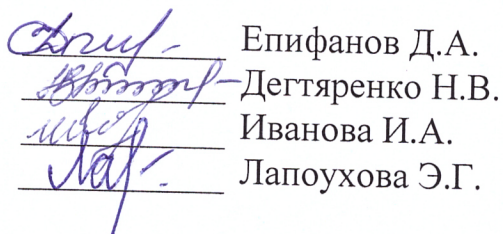 Епифанов Д.А.
Дегтяренко Н.В.
Иванова И.А.
Лапоухова Э.Г.